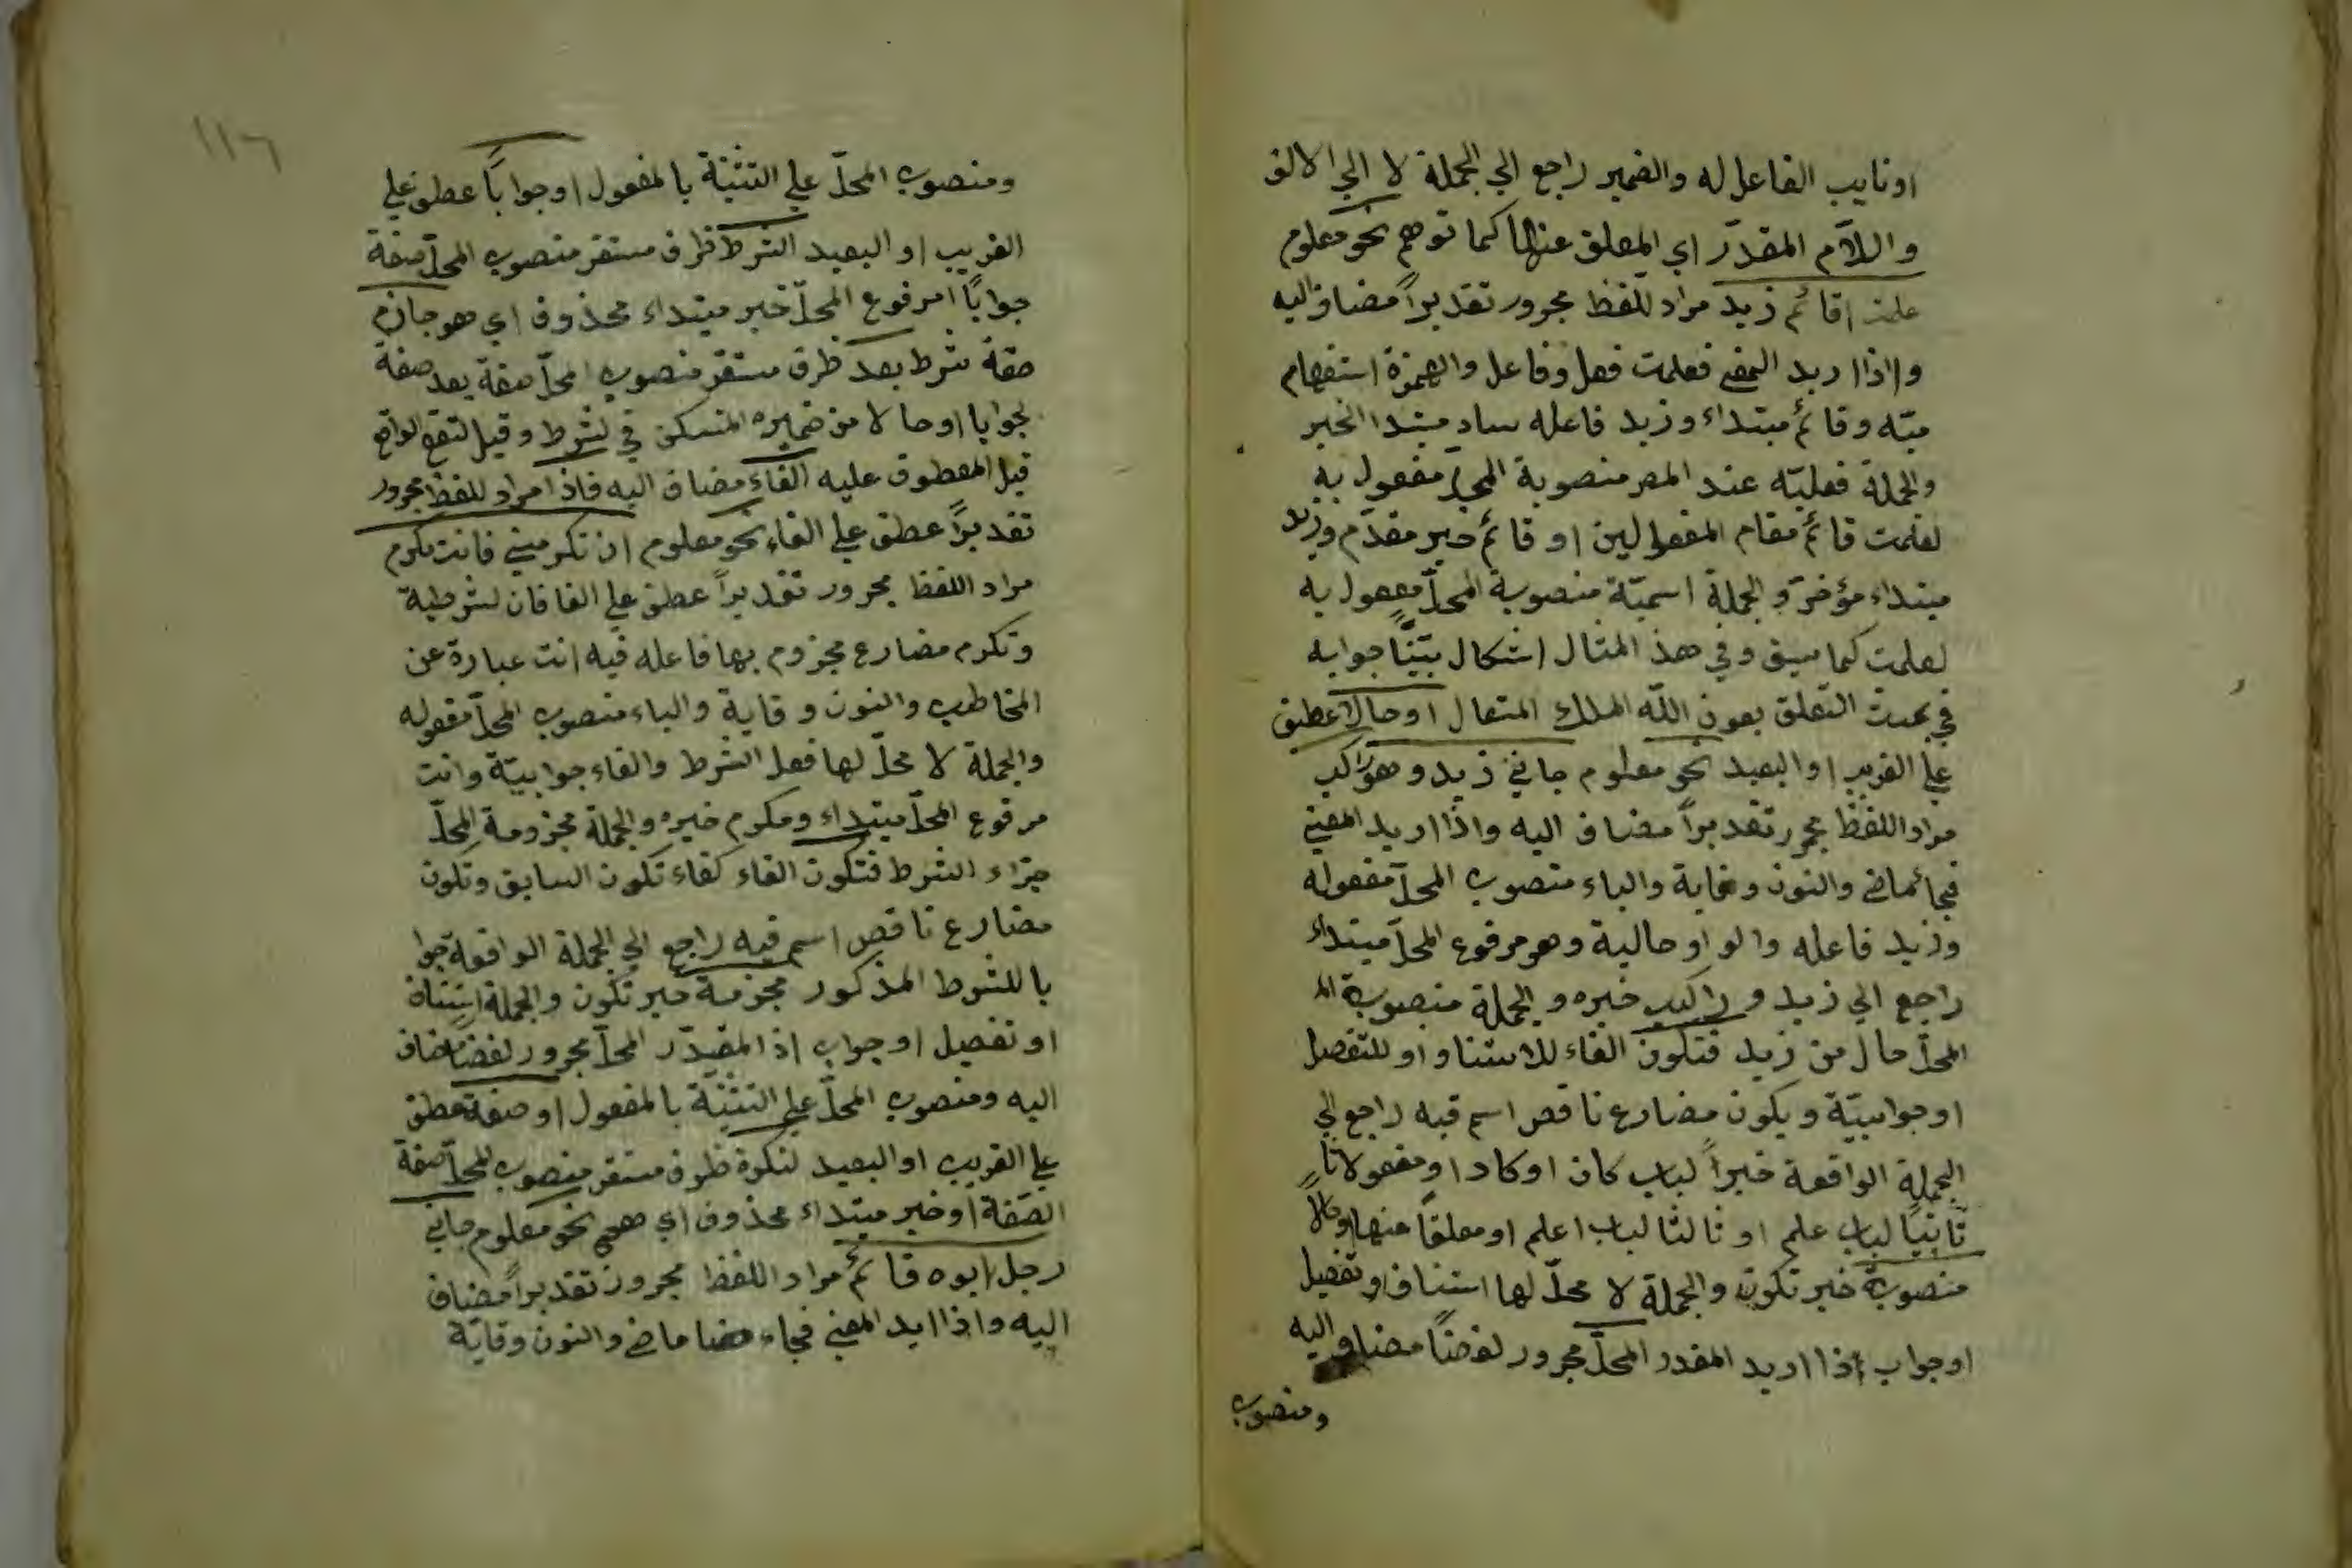 اونايب الفاعل له والضمير راجع الي الجملة لا الي الالف
واللام المقدّر اي المعلق عنها كما توهم نحو معلوم
علمت اقائم زيد مراد اللفظ مجرور تقديراً مضاف اليه
واذا اريد المعنى فعلمت فعل وفاعل والهمزة استفهام
ميّه وقائم مبتداء وزيد فاعله ساد مبتدا الخبر
والجملة فعليّه عند المص منصوبة المحلّ مفعول به
لعلمت قائم مقام المفعولين او قائم خبر مقدّم وزيد
مبتداء مؤخر والجملة اسميّة منصوبة المحلّ مفعول به
لعلمت كما سيق وفي هذ المثال اشكال بيّنّا جوابه
في بحيث التعلق بعون اللّه الملك المتعال اوحالا عطف
علي القريب او البعيد نحو معلوم جاني زيد وهو راكب
مراد اللفظ مجرر تقديراً مضاف اليه واذا اريد المعني
فجا ئماض والنون وقاية والياء منصوب المحلّ مفعوله
وزيد فاعله والواو حالية وهو مرفوع المحلّ مبتداء
راجع الي زيد و راكب خبره والجملة منصوبة الم
المحلّ حال من زيد فتكون الفاء للاستنا و او للتفصيل
اوجوابيّة ويكون مضارع ناقص اسم فيه راجع الي
الجملة الواقعة خبراً لباب كان اوكاد او مفعولا ثا
ثانياً لباب علم او ثالثا لباب اعلم او معلقاً عنها اوحالاً
منصوبة خبر تكون والجملة لا محلّ لها استناف او تفصيل
اوجواب اذا اريد المقدر المحلّ مجرور لفضاً مضاف اليه
ومنصوب
١١٦
ومنصوب المحلّ علي التثنية بالمفعول اوجواباً عطف علي
القريب او البعيد الشرط ظرف مستقر منصوب المحلّ صفة
جواباً امرفوع المحلّ خبر مبتداء محذوف اي هو جازم
صفة شرط بعد ظرف مستقر منصوب المحلّ صفة بعد صفة
لجوابا اوحالا من ضميره المنسكن في لشرط وقيل لتقع الواقع
قبل المعطوف عليه الفاء مضاف اليه فاذا مراد للفظ مجرور
تقديراً عطف علي الفاء نحو معلوم ان تكرمني فانت مكرم
مراد اللفظ مجرور تقديراً عطف علي الفا فان لشرطية
وتكرم مضارع مجزوم بها فاعله فيه انت عبارة عن
المخاطب والنون وقاية والياء منصوب المحلّ مفعوله
والجملة لا محلّ لها فعل الشرط والفاء جوابيّة وانت
مرفوع المحلّ مبتداء ومكرم خبره والجملة مجزومة المحلّ
جزاء الشرط فتكون الفاء كفاء تكون السابق وتكون
مضارع ناقص اسم فيه راجع الي الجملة الواقعة جوا
با للشرط المذكور مجزمة خبر تكون والجملة استناف
او تفصيل اوجواب اذ المقدّر المحلّ مجرور لفضاً مضاف
اليه ومنصوب المحلّ علي التثنيّة بالمفعول او صفة عطف
علي القريب او البعيد لنكرة ظرف مستقر منصوب المحلّ صفة
الصّفة او خبر مبتداء محذوف اي هي نحو معلوم جاني
رجل ابوه قائم مراد اللفظ مجرور تقديراً مضاف
اليه واذا ايد المعني فجاء ماض والنون وقايّة